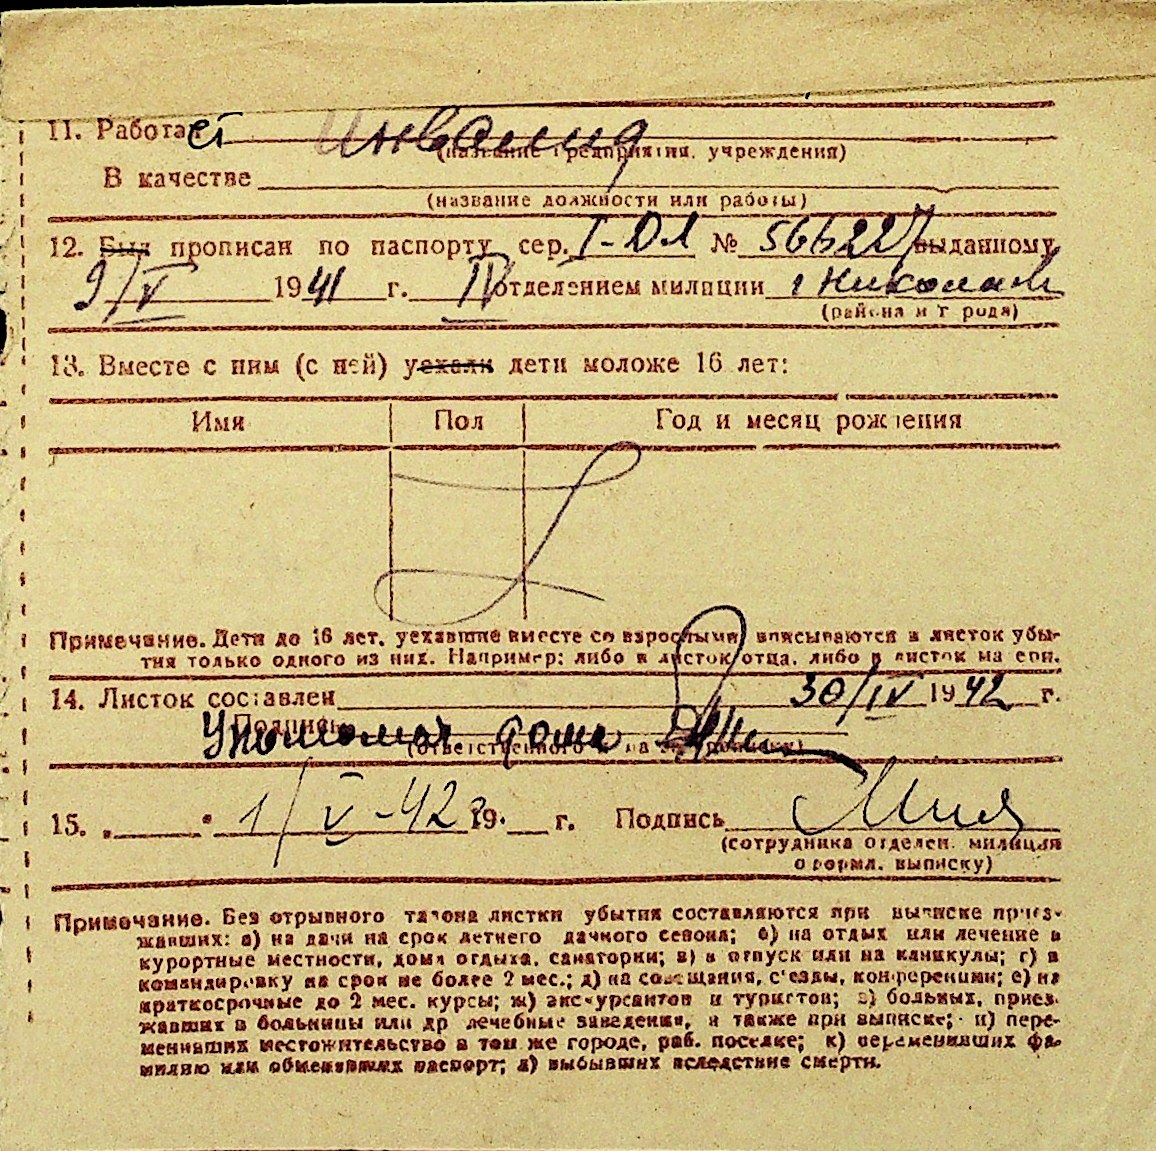 11. Работает Инвалид
(название предприятия, учреждения)
В качестве
(название должности или работы)
12. Был прописан по паспорту сер. I-ОЛ № 566227 выданному
9/V 1941 г. IV отделением милиции г Николаев
(района и города)
13. Вместе с ним (с ней) уехали дети моложе 16 лет:
Имя Пол Год и месяц рождения
Примечание. Дети до 16 лет, уехавшие вместе со взрослыми, вписываются в листок убы-
тия только одного из них. Например: либо в листок отца, либо в листок матери.
14. Листок составлен 30/IV 1942 г.
Подпись
(ответственного за прописку)
15. „ " 1/V-42 19 г. Подпись
(сотрудника отделен. милиции
оформл. выписку)
Примечание. Без отрывного талона листки убытия составляются при выписке приез-
жавших: а) на дачи на срок летнего дачного сезона; б) на отдых или лечение в
курортные местности, дома отдыха, санатории; в) в отпуск или на каникулы; г) в
командировку на срок не более 2 мес.; д) на совещания, с'езды, конференции; е) на
краткосрочные до 2 мес. курсы; ж) экскурсантов и туристов; з) больных, приез-
жавших в больницы или др лечебные заведения, а также при выписке; и) пере-
менивших местожительство в том же городе, раб. поселке; к) переменивших фа-
милию или обменявших паспорт; л) выбывших вследствие смерти.